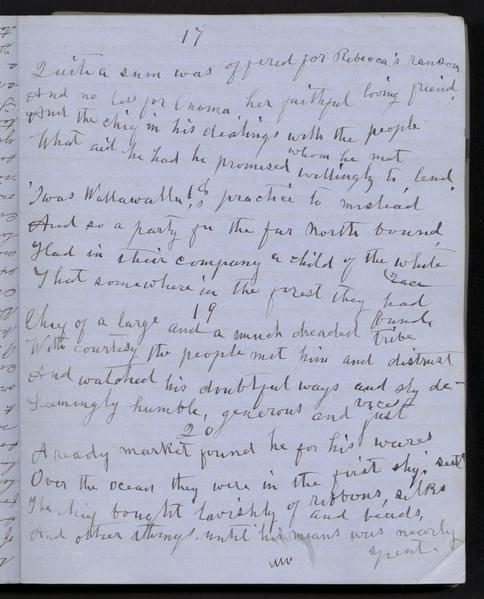 17
Quite a sum was offered for Rebecca's ransom
And no less for Onoma, her faithful loving friend,
And the chief in his dealings with the people
whom he met
What aid he had he promised willingly to lend.
18
'Twas Wallawalla's practice to mislead
And so a party for the far North bound,
Had in their company a child of the white
race
That somewhere in the forest they had
found.
19
Chief of a large and a much dreaded tribe
With courtesy the people met him and distrust
And watched his doubtful ways and sly de-
vices
Seemingly humble, generous and just
20
A ready market found he for his wares
Over the ocean they were in the first ship sent
The chief bought lavishly of ribbons, silks
and beads,
And other things until his means was nearly
spent.